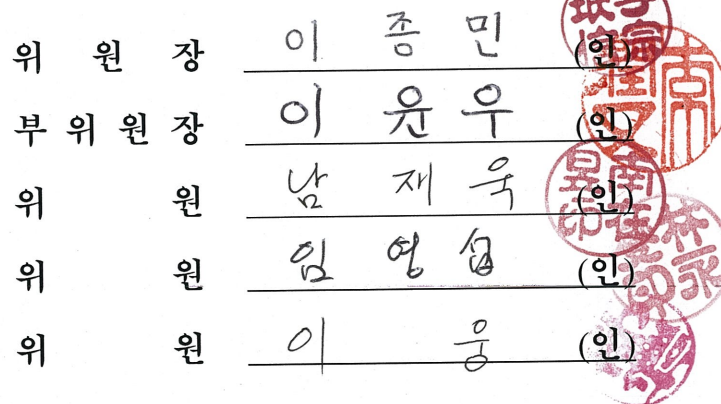 위 원 장 이 종 민 (인)
부 위 원 장 이 윤 우 (인)
위 원 남 재 욱 (인)
위 원 임 영 섭 (인)
위 원 이 웅 (인)